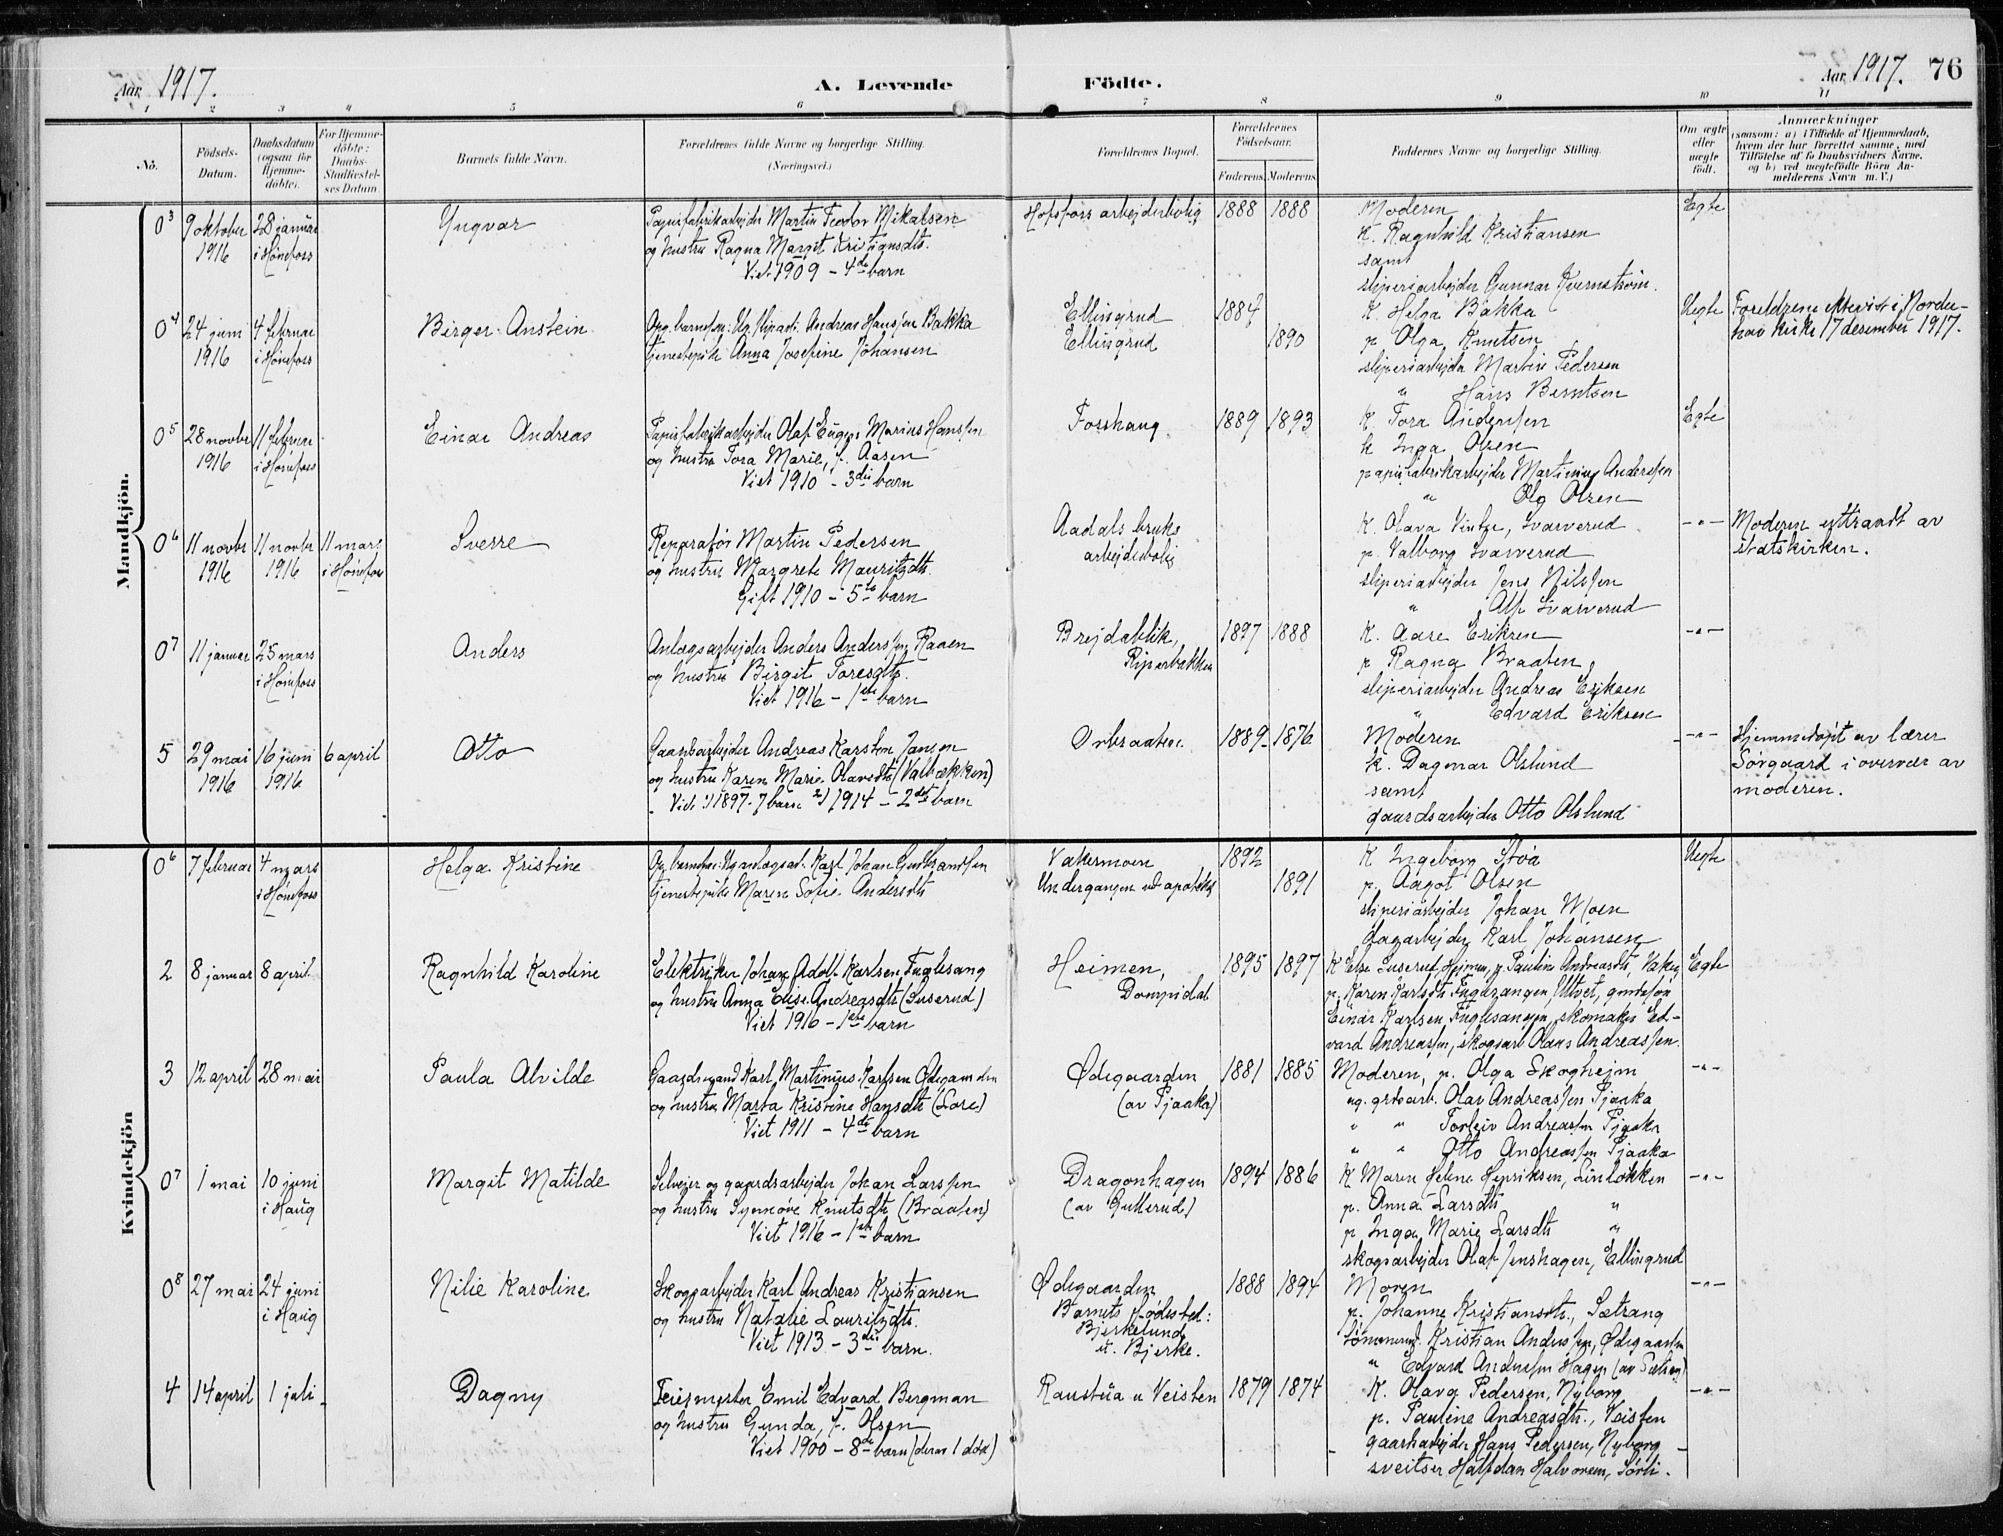 Aar 1917.
A. Levende Födte.
Aar 1917. 76
1 2 3 4 5 6 7 8 9 10 11
No.
Födsels-Datum.
Daabsdatum (ogsaa for Hjemme-döbte).
For Hjemme-döbte: Daabs-Stadfæstel-ses Datum.
Barnets fulde Navn.
Forældrenes fulde Navne og borgerlige Stilling. (Næringsvei.)
Forældrenes Bopæl.
Forældrenes Födselsaar.
Faderens. Moderens.
Faddernes Navne og borgerlige Stilling.
Om ægte eller uægte födt.
Anmærkninger
(saasom: a) i Tilfælde af Hjemmedaab,
hvem der har forrettet samme, med
Tilföielse af to Daabsvidners Navne,
og b) ved uægtefödte Börn An-
melderens Navn m. V.)
Mandkjön.
0 3 9 oktober 1916 28 januar i Hönefoss
Yngvar
Papirfabrikarbejder Martin Teodor Mikalsen
og hustru Ragna Margit Kristiansdtr.
Viet 1909 - 4de barn
Hofsfors arbejderbolig 1888 1888
Moderen
K. Ragnhild Kristiansen
samt
sliperiarbejder Gunnar Kvernström.
Egte
0 4 24 juni 1916 4 februar i Hönefoss
Birger Anstein
Opg. barnefar: Ug. sliparb. Andreas Hanssen Bakka
tjenestepike Anna Josefine Johansen
Ellingrud 1884
Ellingrud 1890
K. Helga Bakka
p. Olga Knutsen
sliperiarbejder Martin Pedersen
" Hans Berntsen
Uegte
Foreldrene ekteviet i Norder-
hov kirke 17 desember 1917.
0 5 28 novbr 1916 11 februar i Hönefoss
Einar Andreas
Papirfabrikarbejder Olaf Eugen Marius Hanssen
og hustru Tora Marie, f. Aasen
Viet 1910 - 3die barn
Forshaug 1889 1893
K. Tora Anderssen
k Inga Olsen
papirfabrikarbejder Martinius Anderssen
" Ole Olsen
Egte
0 6 11 novbr 1916 11 novbr 1916 11 mars i Hönefoss
Sverre
Reparatör Martin Pedersen
og hustru Margrete Mauritzdtr.
Gift 1910 - 5te barn
Aadals bruks
arbejderbolig
K. Olava Vintze, Svarverud
p. Valborg Svarverud
sliperiarbejder Jens Nilssen
" Alf Svarverud
- " -
Moderen uttraadt av
statskirken.
0 7 11 januar 25 mars i Hönefoss
Anders
Anlegsarbejder Anders Anderssen Raaen
og hustru Birgit Toresdtr.
Viet 1916 - 1ste barn
Brejdablik,
Riperbakken
1897 1888
K. Aase Eriksen
p Ragna Braaten
sliperiarbejder Andreas Eriksen
" Edvard Eriksen
- " -
5 29 mai 1916 16 juni 1916 6 april
Otto
Gaardsarbejder Andreas Karsten Jansen
og hustru Karen Marie Olavesdtr (Valbækken)
- Viet 1) 1897- 7 barn 2) 1914 - 2det barn
Onbraaten 1889 1876
Moderen
k. Dagmar Olslund
samt
gaardsarbejder Otto Olslund
- " -
Hjemmedøpt av lærer
Sörgaard i overvær av
moderen.
Kvindekjön
0 6 7 februar 4 mars i Hönefoss
Helga Kristine
Opg barnefar: Ug anlegsarb. Karl Johan Gulbrandsen
tjenestepike Maren Sofie Andersdtr
Vakermoen 1892
Undergangen ved apoteket 1891
K Ingeborg Stöa
p. Aagot Olsen
sliperiarbejder Johan Moen
dagarbejder Karl Johansen
Uegte
2 8 januar 8 april
Ragnhild Karoline
Elektriker Johan Adolf Karlsen Fuglesang
og hustru Anna Elise Andreasdtr (Luserud)
Viet 1916 - 1ste barn
Heimen,
Dompidal
1895 1897
K Else Luserud, Heimen, p. Pauline Andreasdtr, Vaker,
p. Karen Karlsdtr Fuglesangen, Utvet, grdsfon
Einar Karlsen Fuglesangen, skomaker Ed-
vard Andreassen, skogsarb Olaus Andreassen.
Egte
3 12 april 28 mai
Paula Alvilde
Gaardmand Karl Martinius Karlsen Ødegaarden
og hustru Marta Kristine Hansdtr (Lore)
Viet 1911 - 4de barn
Ødegaarden
(av Tjaaka)
1881 1885
Moderen, p. Olga Skoghejm
ug. grdsarb. Olav Andreassen Tjaaka
" " Torleiv Andreassen Tjaaka
" " Otto Andreassen Tjaaka
- " -
0 7 1 mai 10 juni i Haug
Margit Matilde
Selveier og gaardsarbejder Johan Larssen
og hustru Synnöve Knutsdtr (Braaten)
Viet 1916 - 1ste barn
Dragonhagen
(av Gullerud)
1894 1886
K Maren Helene Henriksen, Linløkken
p. Anna Larsdtr "
p Inga Marie Larsdtr "
skogsarbejder Olaf Jenshagen, Ellingrud
- " -
0 8 27 mai 24 juni i Haug
Nilie Karoline
Skogsarbejder Karl Andreas Kristiansen
og hustru Natalie Lauritzdtr.
Viet 1913 - 3die barn.
Ødegaarden
Barnets fødested:
Bjerkelund
u. Bjerke.
1888 1894
Moren
p. Johanne Kristiansdtr., Sætrang
Tömmerm. Kristian Anderssen, Ødegaarden
" Edvard Anderssen Hagen (av Sælsen)
- " -
4 14 april 1 juli
Dagny
Feiermester Emil Edvard Bergman
og hustru Gunda, f. Olsen
Viet 1900 - 8de barn (derav 1 død)
Raustua u Veisten 1879 1874
K. Olava Pedersen, Nyborg
p. Pauline Andreasdtr., Veisten
gaardsarbejder Hans Pedersen, Nyborg
sveitser Halfdan Halvorsen, Sörli.
- " -